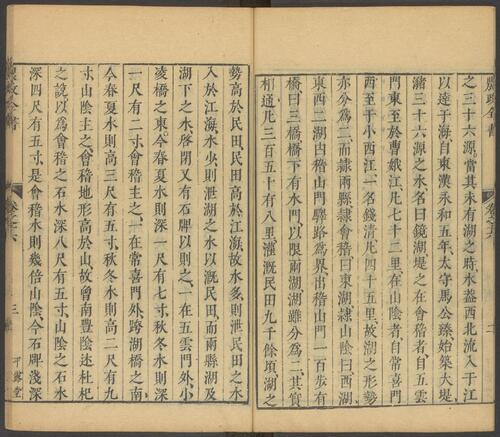 之三十六源當其未有湖之時水葢西北流入于江
以達于海自東漢永和五年太守馬公臻始築大堤
潴三十六源之水名曰鏡湖堤之在會稽者自五雲
門東至於曹娥江凡七十二里在山陰者自常喜門
西至于小西江一名錢清凡四十五里故湖之形勢
亦分爲二而隷兩縣隷會稽曰東湖隷山陰曰西湖
東西二湖由稽山門驛路爲界出稽山門一百步有
橋曰三橋橋下有水門以限兩湖湖雖分爲二其實
相通凡三百五十有八里灌漑民田九千餘頃湖之
農政全書
卷之十六
二
勢高於民田民田高於江海故水多則泄民田之水
入於江海水少則泄湖之水以漑民田而兩縣湖及
湖下之水啓閉又有石牌以則之一在五雲門外小
凌橋之東今春夏水則深一尺有七寸秋冬水則深
一尺有二寸會稽主之一在常喜門外跨湖橋之南
今春夏水則高三尺有五寸秋冬水則高二尺有九
寸山陰主之會稽地形高於山故曾南豐陰述杜杞
之說以爲會稽之石水深八尺有五寸山陰之石水
深四尺有五寸是會稽水則幾倍山陰今石牌淺深
農政全書
卷之十六
三
平露堂